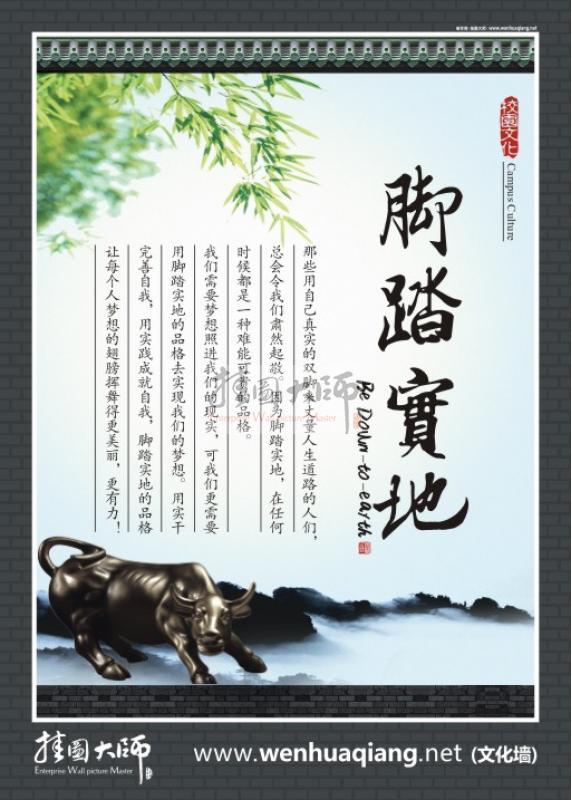 www.wenhuaqiang.net
校園文化
Campus Culture
脚踏實地
Be Down-to-earth
那些用自己真实的双脚来丈量人生道路的人们，
总会令我们肃然起敬。因为脚踏实地，在任何
时候都是一种难能可贵的品格。
我们需要梦想照进我们的现实，可我们更需要
用脚踏实地的品格去实现我们的梦想。用实干
完善自我，用实践成就自我，脚踏实地的品格
让每个人梦想的翅膀挥舞得更美丽，更有力！
挂圖大师
Enterprise Wall picture Master
挂圖大师
Enterprise Wall picture Master
www.wenhuaqiang.net (文化墙)